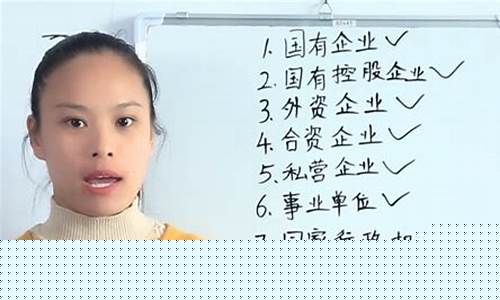 1. 国有企业 ✓
2. 国有控股企业 ✓
3. 外资企业 ✓
4. 合资企业 ✓
5. 私营企业 ✓
6. 事业单位 ✓
7. 国家行政机